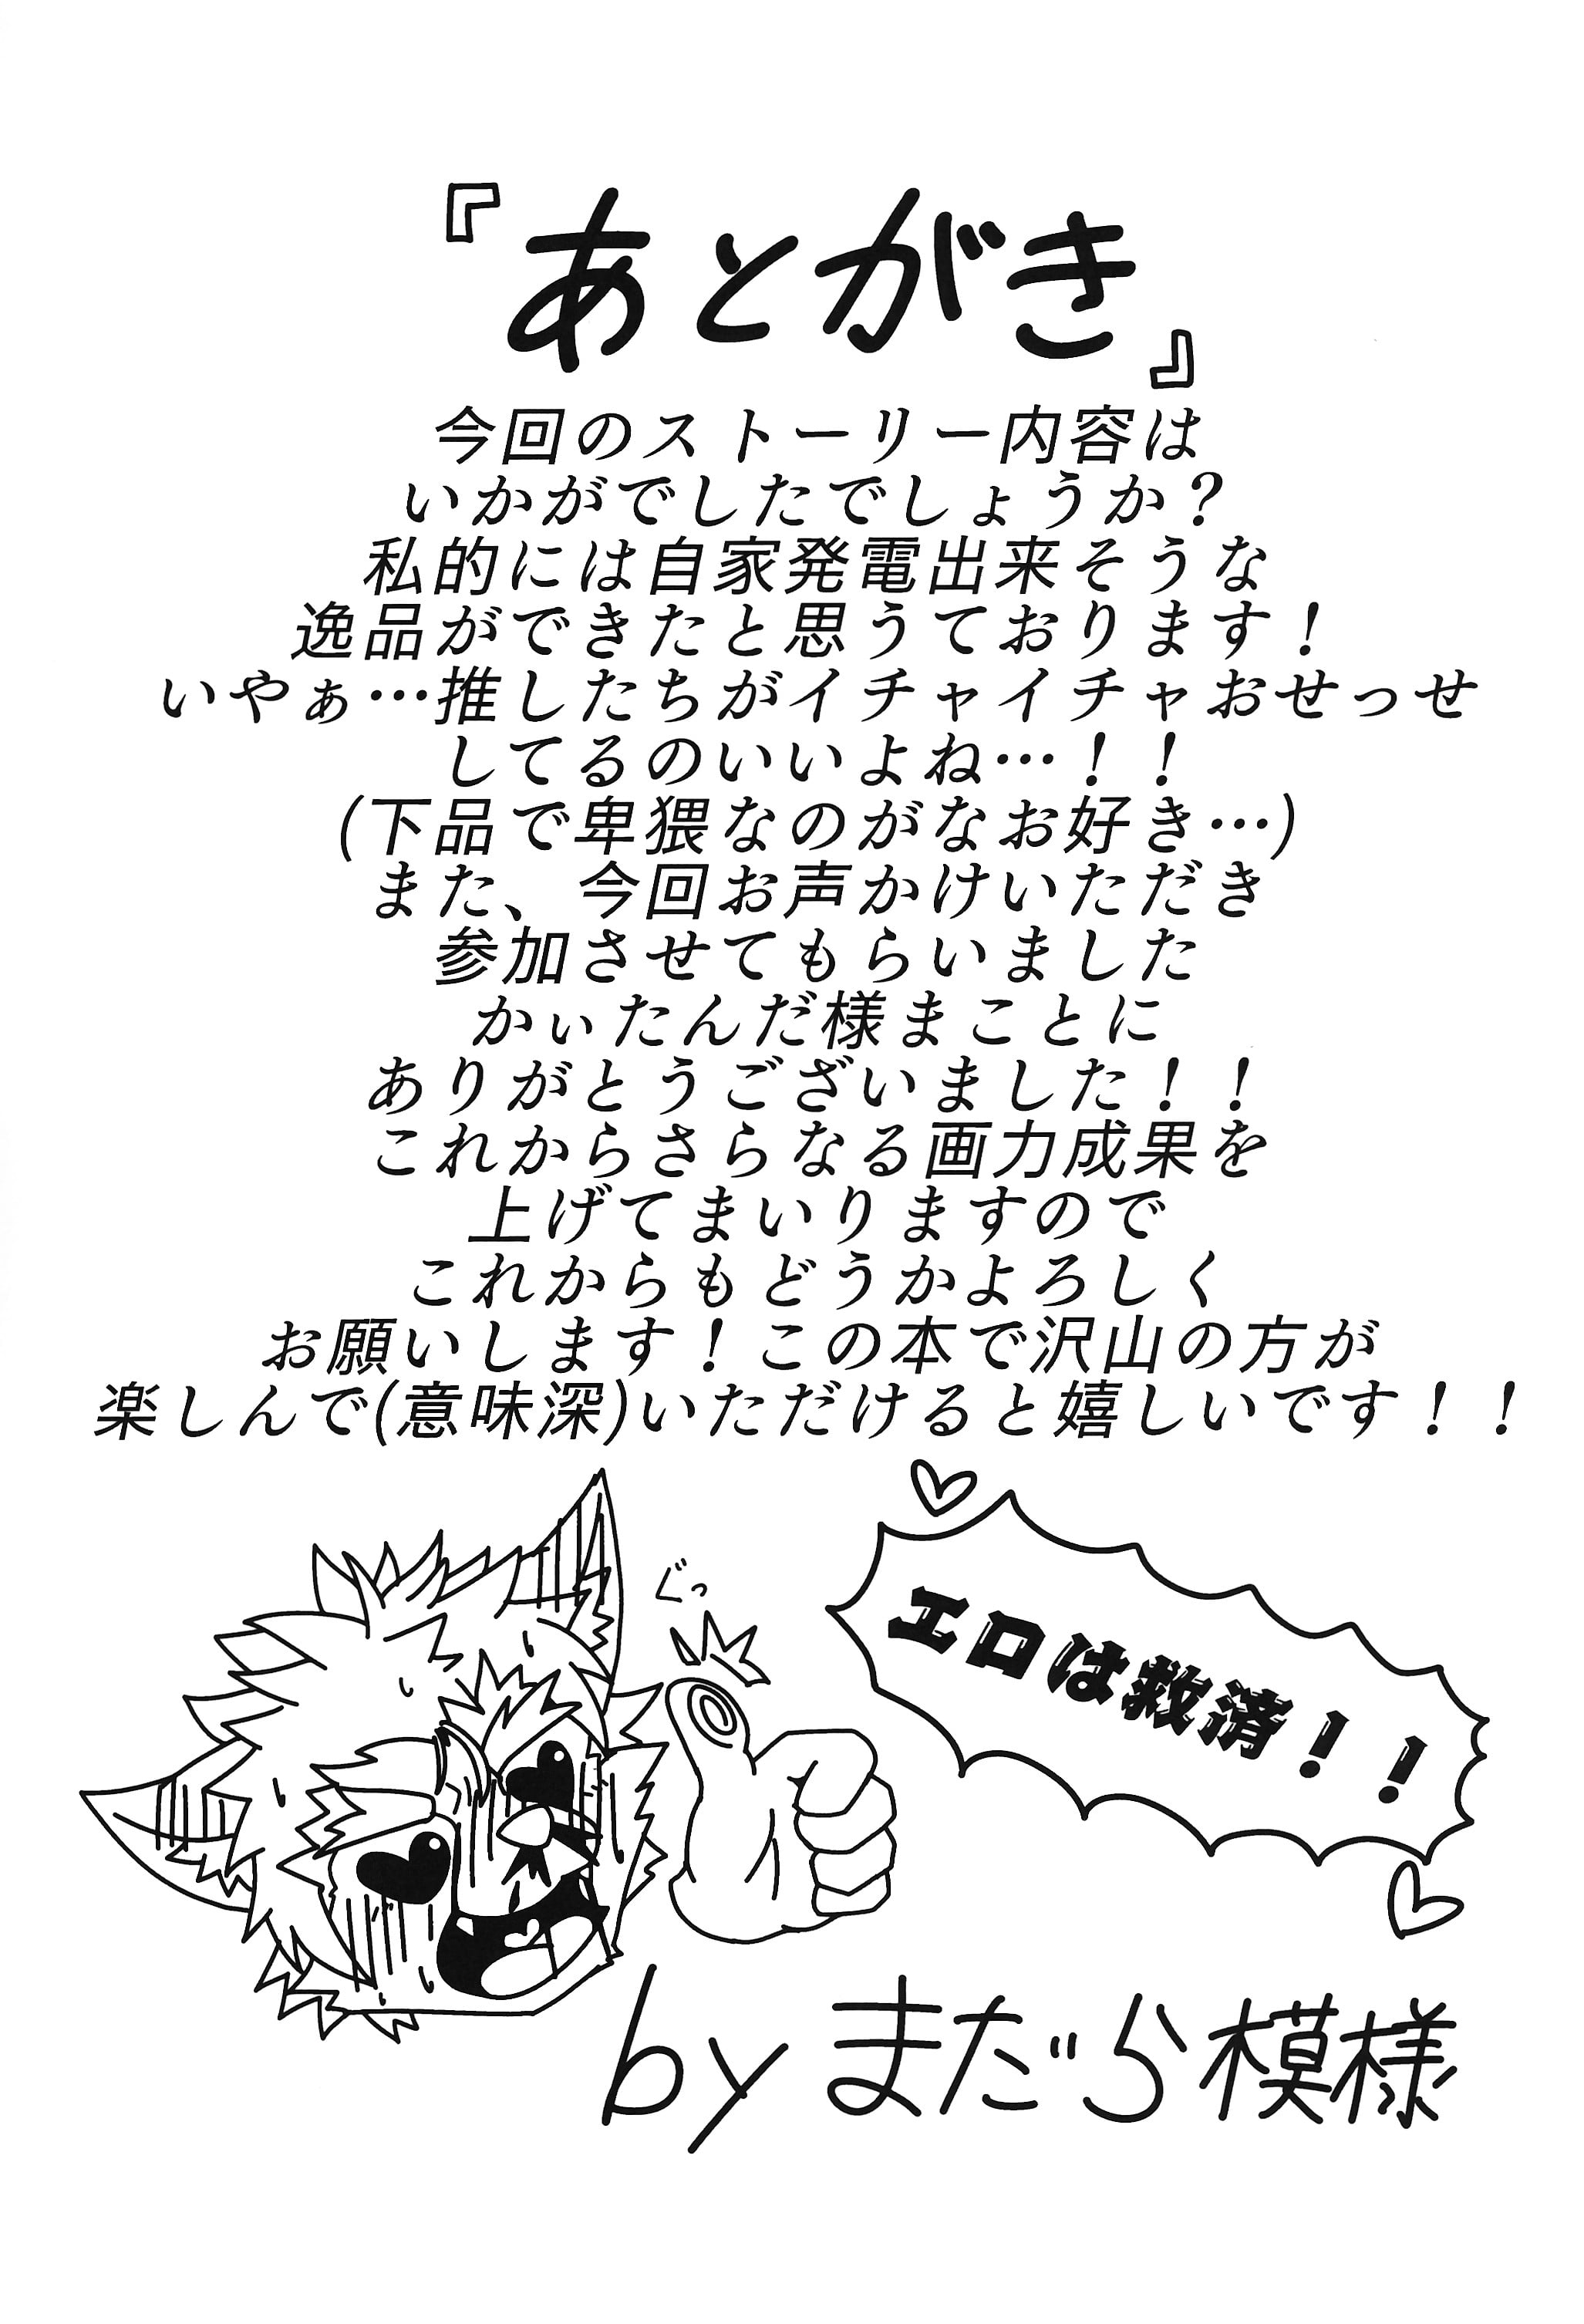 『あとがき』
今回のストーリー内容は
いかがでしたでしょうか？
私的には自家発電出来そうな
逸品ができたと思うております！
いやぁ…推したちがイチャイチャおせっせ
してるのいいよね…！！
(下品で卑猥なのがなお好き…)
また、今回お声かけいただき
参加させてもらいました
かぃたんだ様まことに
ありがとうございました！！
これからさらなる画力成果を
上げてまいりますので
これからもどうかよろしく
お願いします！この本で沢山の方が
楽しんで(意味深)いただけると嬉しいです！！
ぐっ
エロは救済！！
by まだら模様